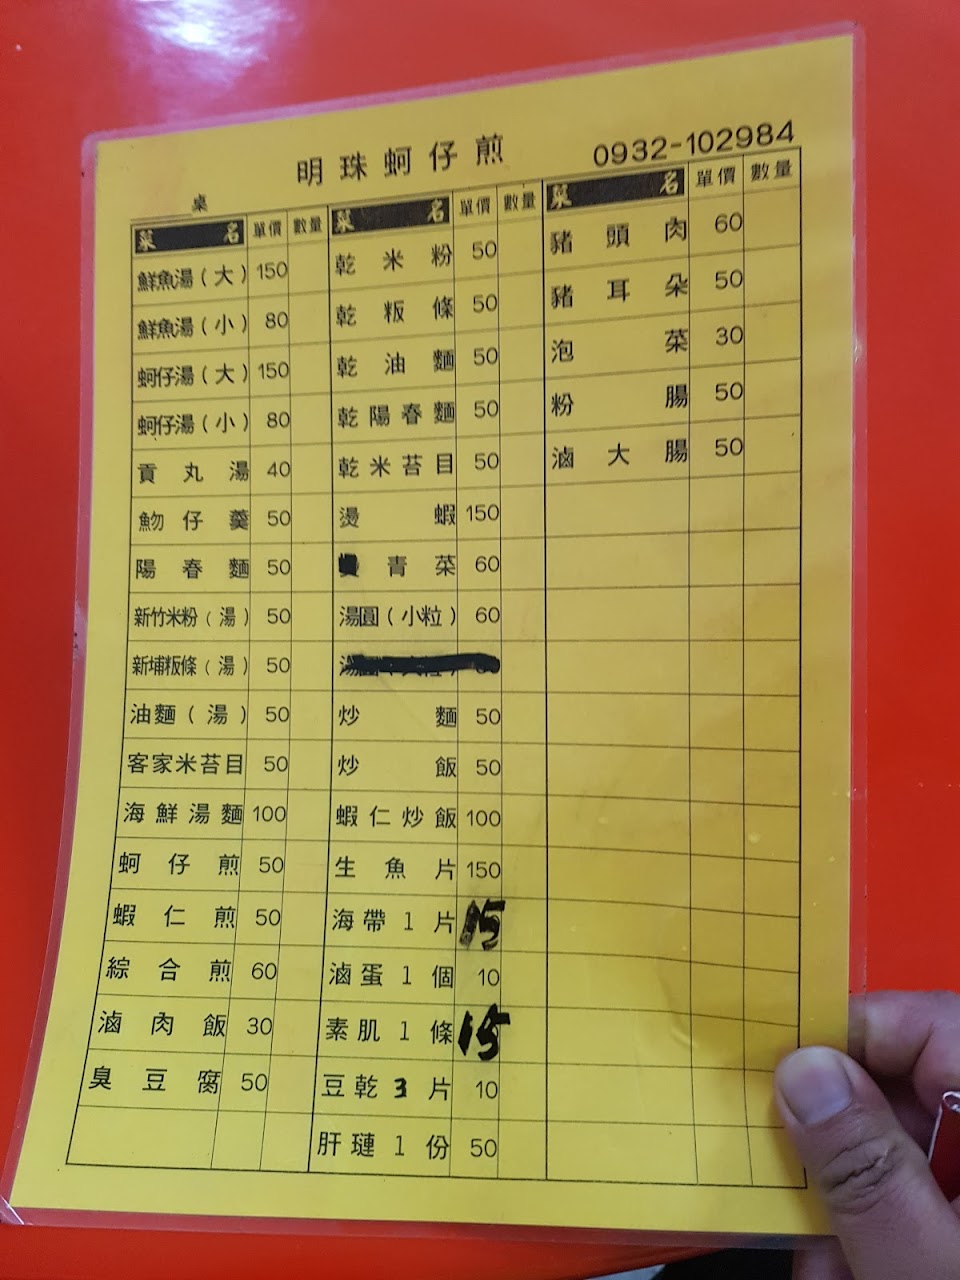 明珠蚵仔煎 0932-102984
桌
菜名 單價 數量
鮮魚湯(大) 150
鮮魚湯(小) 80
蚵仔湯(大) 150
蚵仔湯(小) 80
貢丸湯 40
魩仔羹 50
陽春麵 50
新竹米粉(湯) 50
新埔粄條(湯) 50
油麵(湯) 50
客家米苔目 50
海鮮湯麵 100
蚵仔煎 50
蝦仁煎 50
綜合煎 60
滷肉飯 30
臭豆腐 50
菜名 單價 數量
乾米粉 50
乾粄條 50
乾油麵 50
乾陽春麵 50
乾米苔目 50
燙蝦 150
青菜 60
湯圓(小粒) 60
炒麵 50
炒飯 50
蝦仁炒飯 100
生魚片 150
海帶1片 15
滷蛋1個 10
素肌1條 15
豆乾3片 10
肝璉1份 50
菜名 單價 數量
豬頭肉 60
豬耳朵 50
泡菜 30
粉腸 50
滷大腸 50